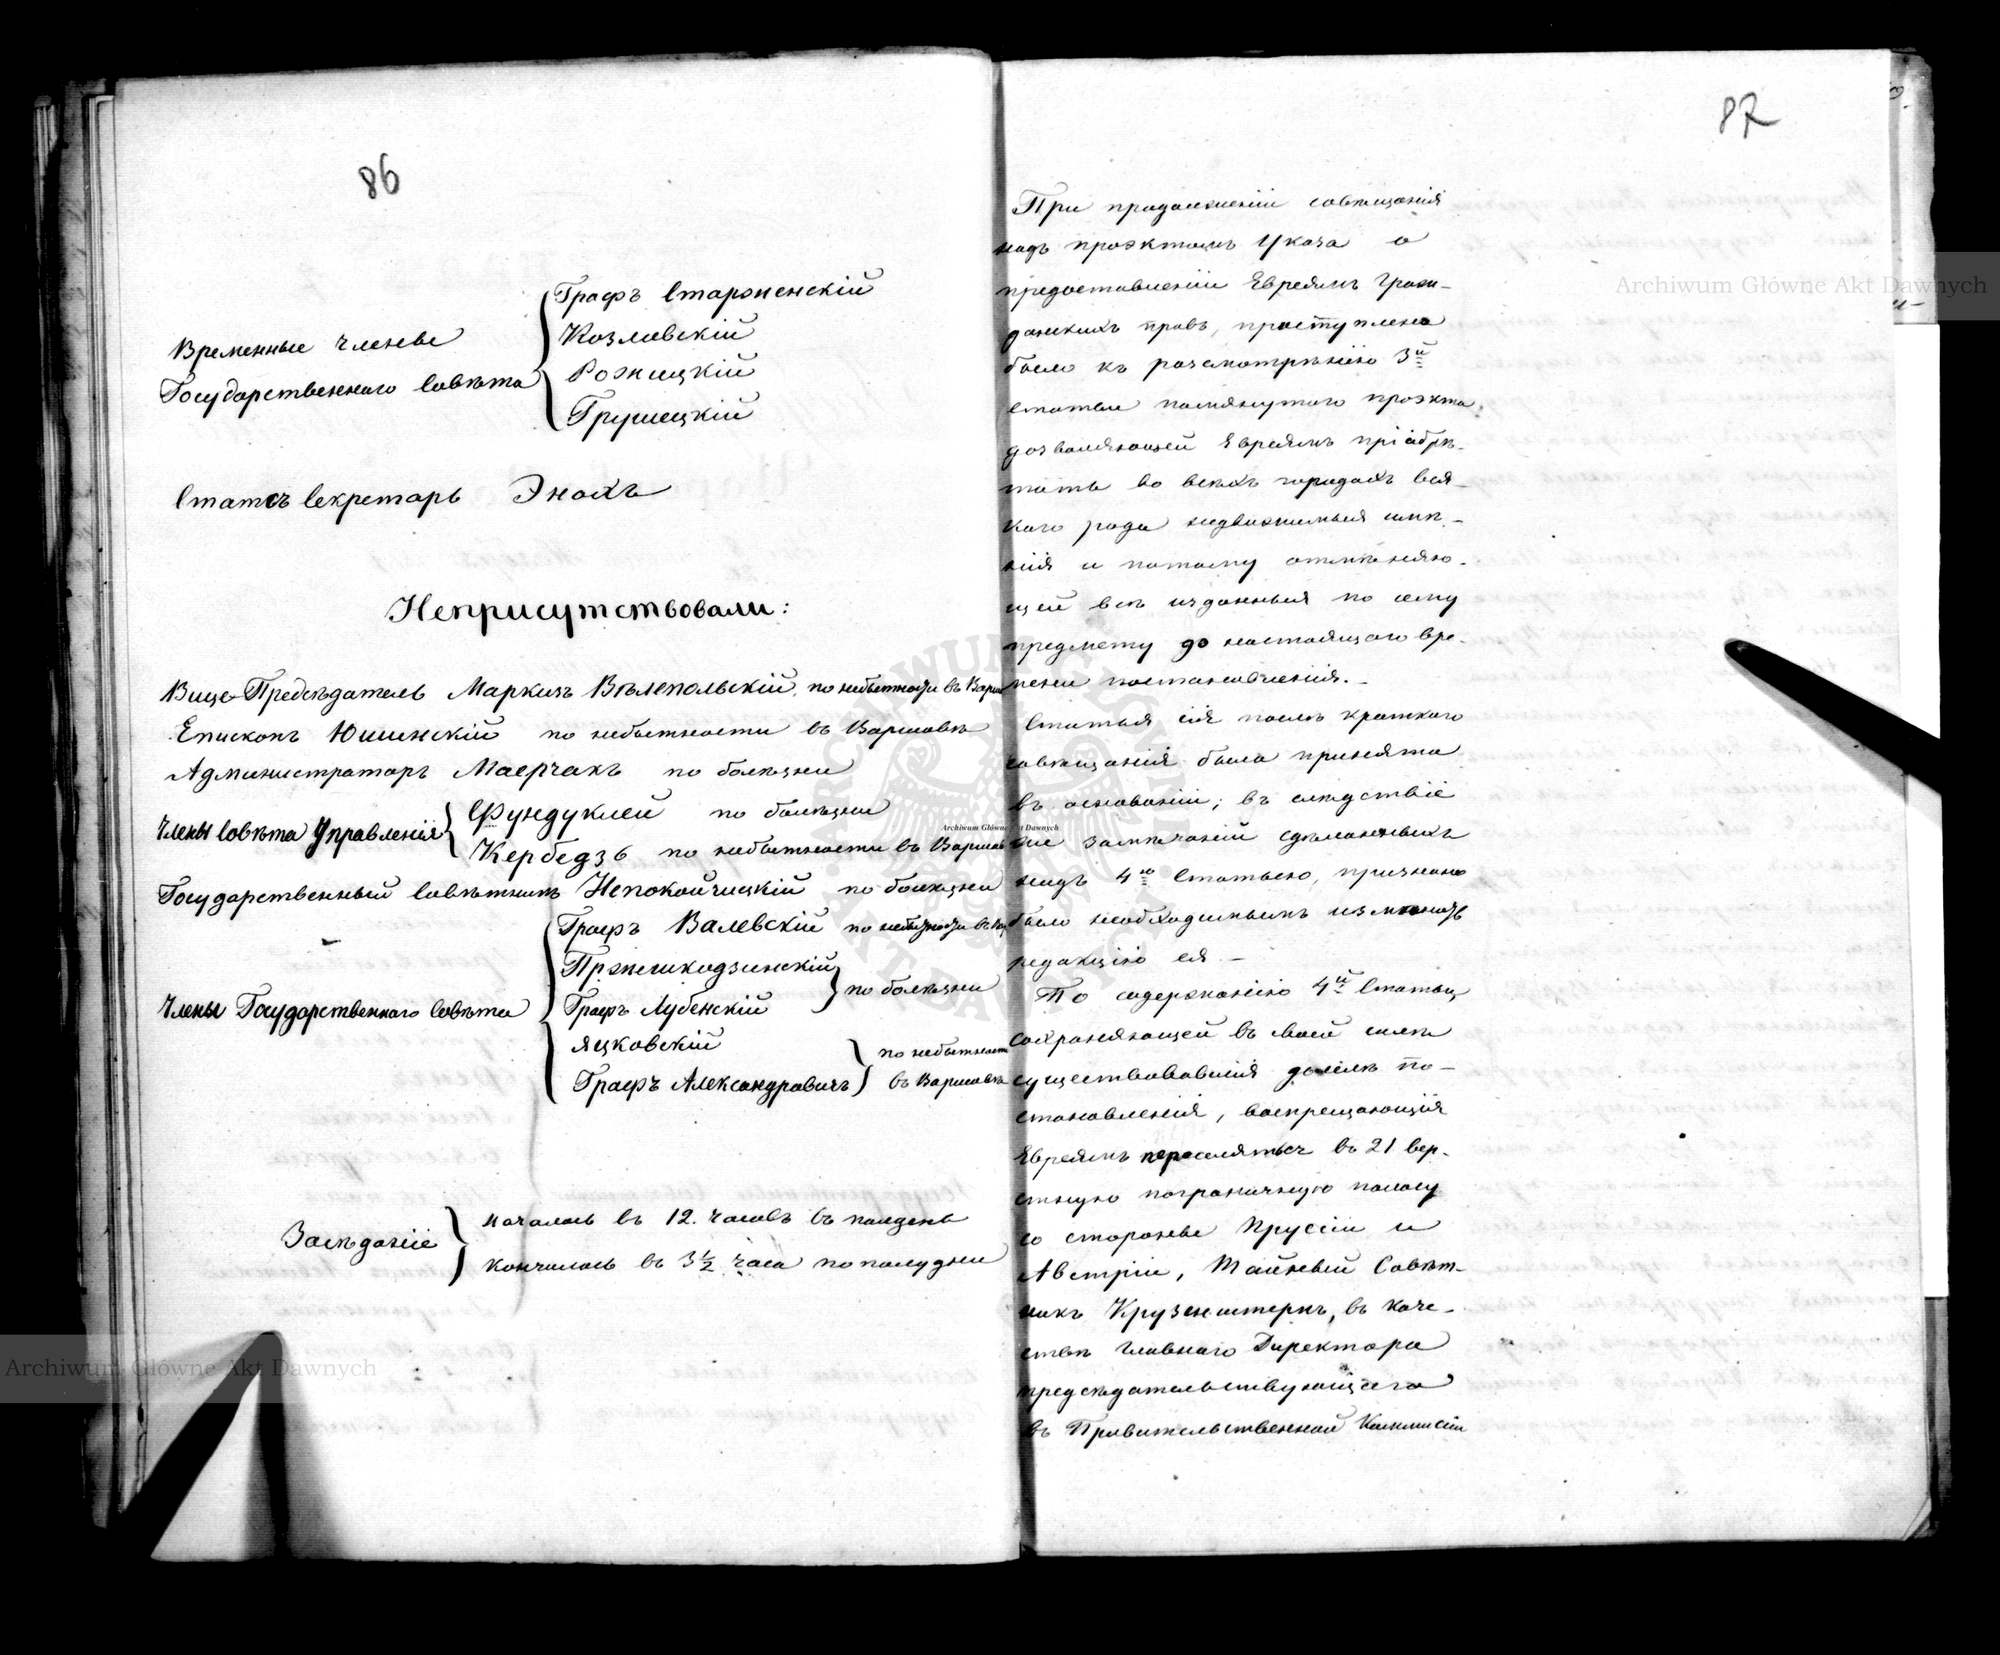 86
Временные члены
Государственнаго Совѣта
Графъ Старженскій
Козловскій
Рожицкій
Грушецкій
Статсъ Секретарь Энохъ
Неприсутствовали:
Вице-Предсѣдатель Маркизъ Вѣлепольскій, по небытности въ Варша
Епископъ Юшинскій по небытности въ Варшавѣ
Администраторъ Маерчакъ по болѣзни
Члены Совѣта Управленія
Фундуклей по болѣзни
Кербедзъ по небытности въ Варшав
Государственный Совѣтникъ Непокойчицкій по болѣзни
Члены Государственнаго Совѣта
Графъ Валевскій по небытности въ Вар
Пржешкодзинскій
Графъ Лубенскій
по болѣзни
Яцковскій
Графъ Александровичъ
по небытности
въ Варшавѣ
Засѣданіе
началось въ 12. часовъ въ полдень
кончилось въ 3½ часа по полудни
87
При продолженіи совѣщанія
надъ проэктомъ Указа о
предоставленіи Евреямъ Граж-
данскихъ правъ, приступлено
было къ разсмотрѣнію 3й
статьи помянутаго проэкта,
дозволяющей Евреямъ пріобрѣ-
тать во всѣхъ городахъ вся-
каго рода недвижимыя имѣ-
нія и потому отмѣняю-
щей всѣ изданныя по сему
предмету до настоящаго вре-
мени постановленія.-
Статья сія послѣ краткаго
совѣщанія была принята
въ основаніи; въ слѣдствіе
же замѣчаній сдѣланныхъ
надъ 4ю Статьею, признано
было необходимымъ измѣнить
редакцію ея.-
По содержанію 4й Статьи
сохраняющей въ своей силѣ
существовавшія доселѣ по-
становленія, воспрещающія
Евреямъ переселяться въ 21 вер-
стную пограничную полосу
со стороны Пруссіи и
Австріи, Тайный Совѣт-
никъ Крузенштернъ, въ каче-
ствѣ Главнаго Директора
предсѣдательствующаго
въ Правительственной Коммисіи
Archiwum Główne Akt Dawnych
Archiwum Główne Akt Dawnych
Archiwum Główne Akt Dawnych